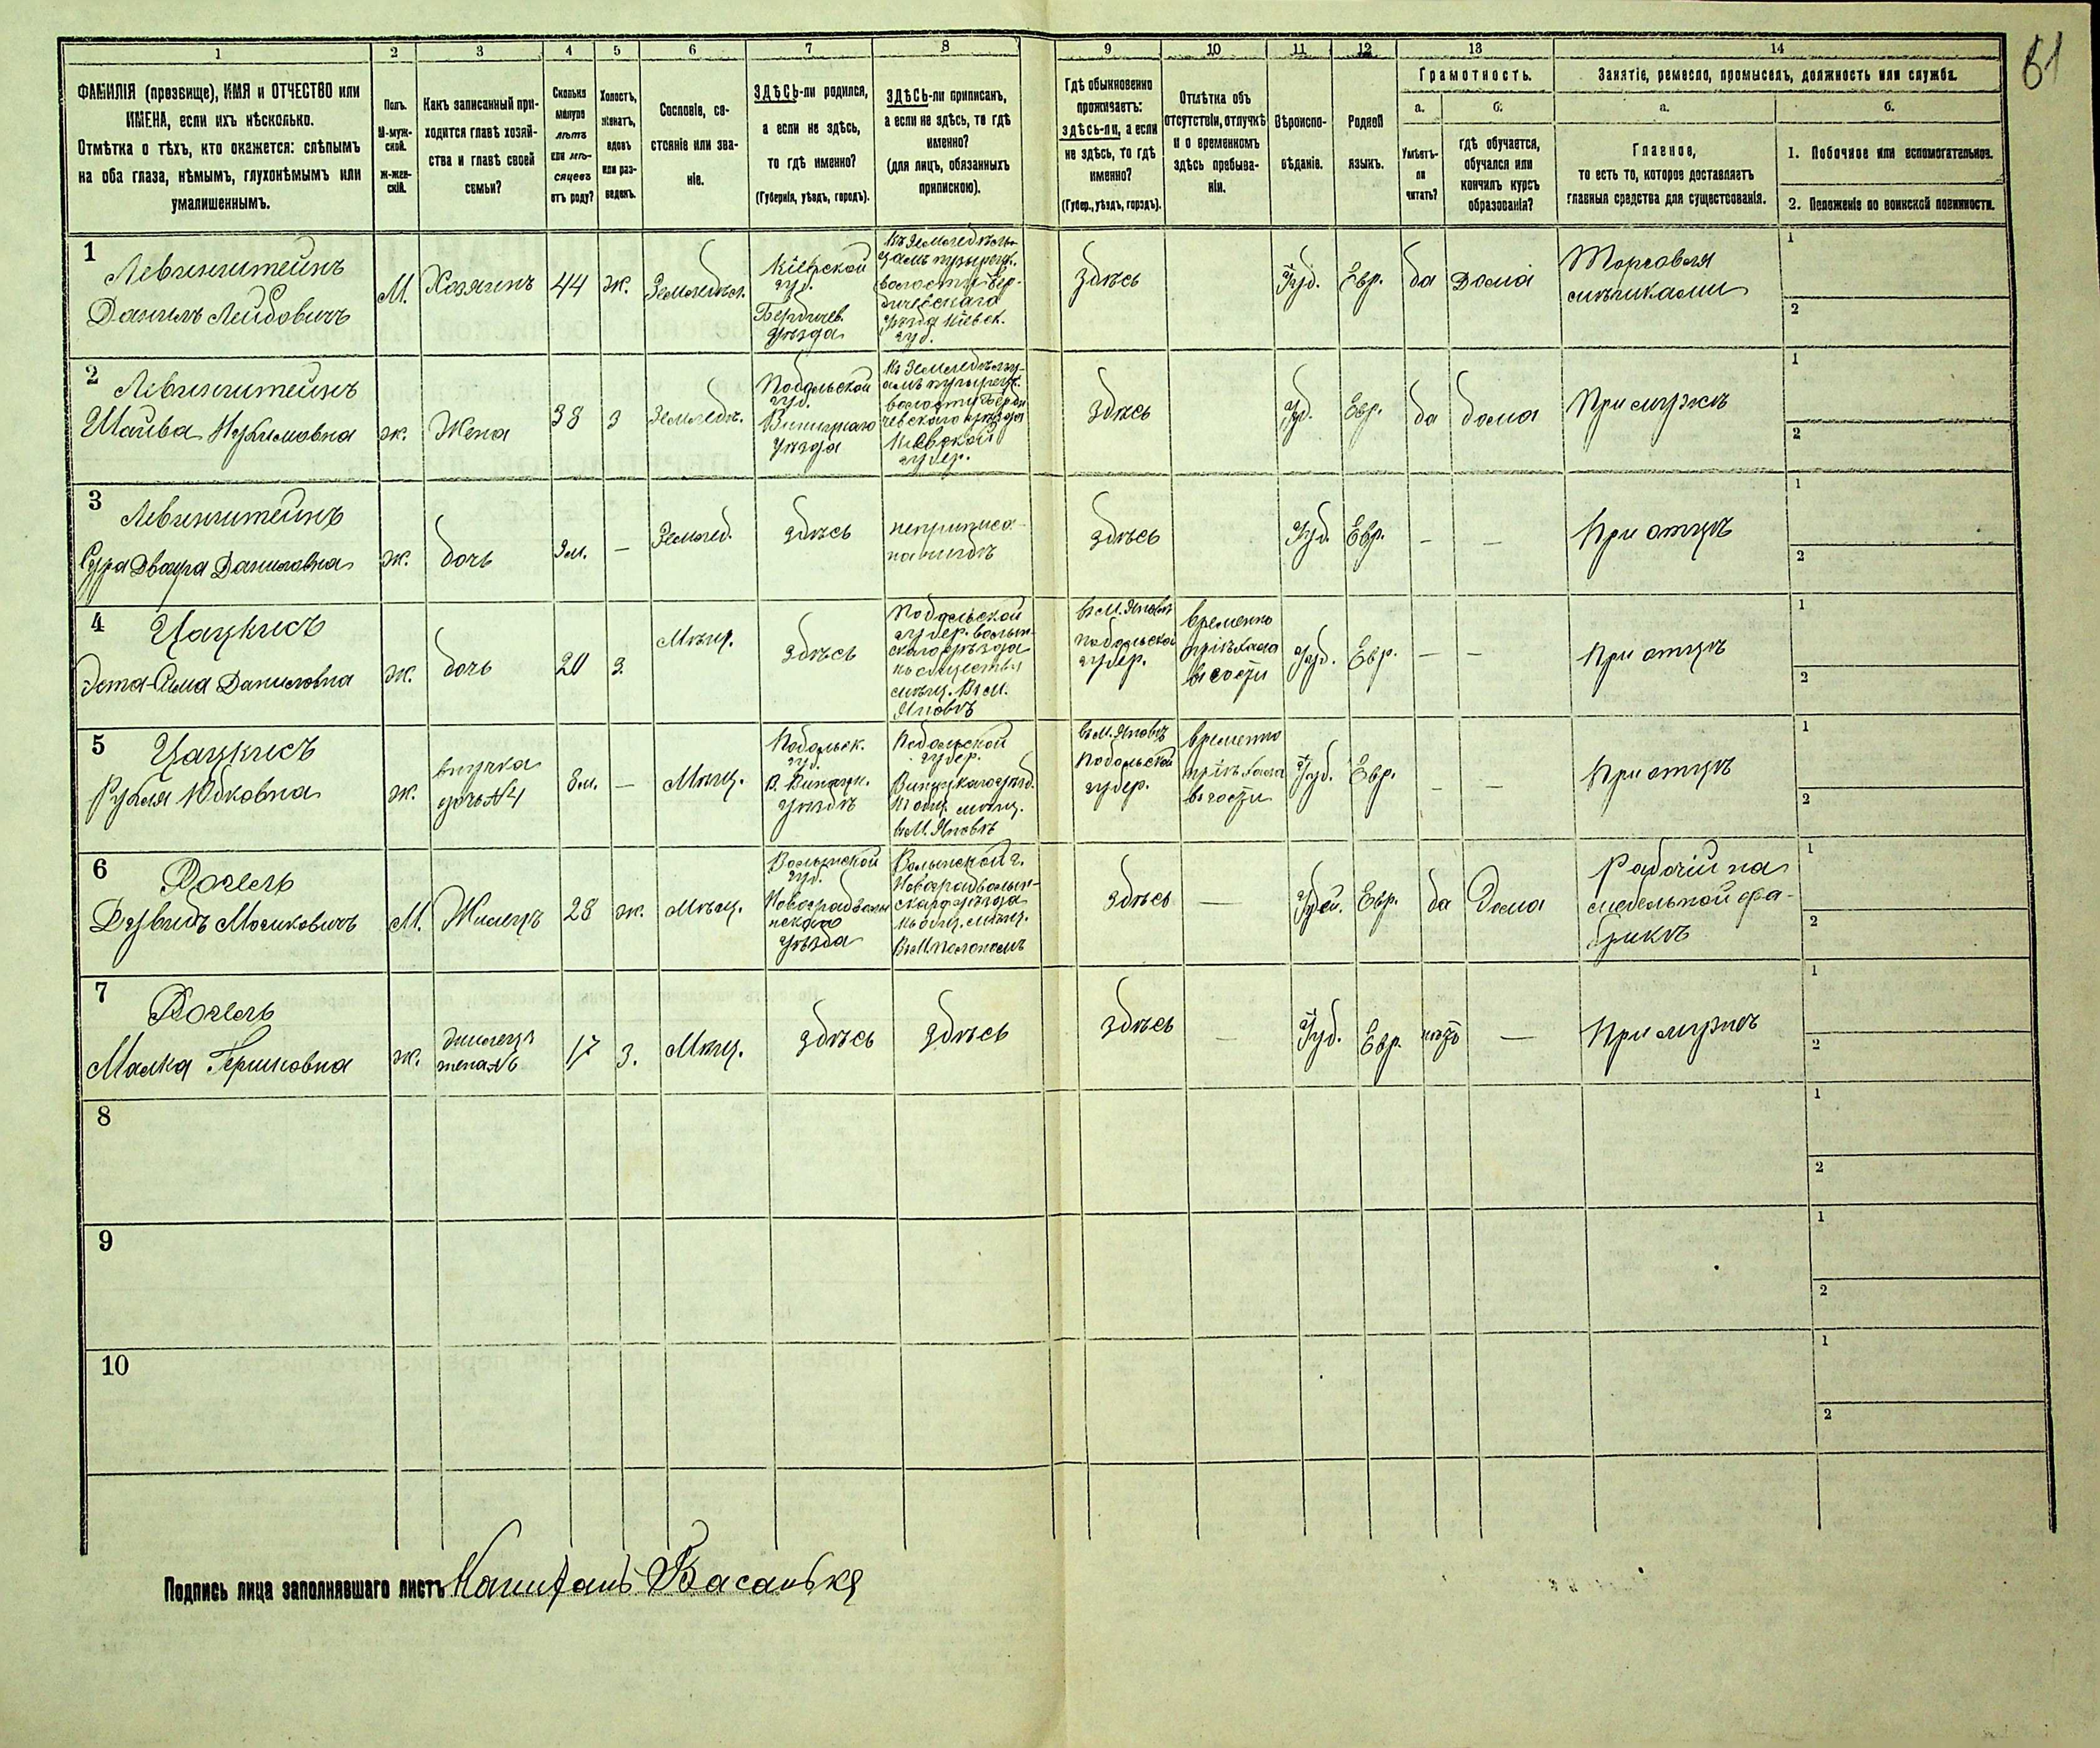 61
1 2 3 4 5 6 7 8 9 10 11 12 13 14
ФАМИЛІЯ (прозвище), ИМЯ и ОТЧЕСТВО или
ИМЕНА, если ихъ нѣсколько.
Отмѣтка о тѣхъ, кто окажется: слѣпымъ
на оба глаза, нѣмымъ, глухонѣмымъ или
умалишеннымъ.
Полъ.
М-муж-
ской.
Ж-жен-
скій.
Какъ записанный при-
ходится главѣ хозяй-
ства и главѣ своей
семьи?
Сколько
минуло
лѣтъ
или мѣ-
сяцевъ
отъ роду?
Холостъ,
женатъ,
вдовъ
или раз-
веденъ.
Сословіе, со-
стояніе или зва-
ніе.
ЗДѢСЬ-ли родился,
а если не здѣсь,
то гдѣ именно?
(Губернія, уѣздъ, городъ).
ЗДѢСЬ-ли приписанъ,
а если не здѣсь, то гдѣ
именно?
(для лицъ, обязанныхъ
припискою).
Гдѣ обыкновенно
проживаетъ:
здѣсь-ли, а если
не здѣсь, то гдѣ
именно?
(Губер., уѣздъ, городъ).
Отмѣтка объ
отсутствіи, отлучкѣ
и о временномъ
здѣсь пребыва-
ніи.
Вѣроиспо-
вѣданіе.
Родной
языкъ.
Грамотность.
а. б.
Умѣетъ-
ли
читать?
гдѣ обучается,
обучался или
кончилъ курсъ
образованія?
Занятіе, ремесло, промыселъ, должность или служба.
а. б.
Главное,
то есть то, которое доставляетъ
главныя средства для существованія.
1. Побочное или вспомогательное.
2. Положеніе по воинской повинности.
1
Левинштейнъ
Данилъ Лейбовичъ
М.
Хозяинъ
44
ж.
Земледѣл.
Кіевской
губ.
Бердичев.
уѣзда
Къ Земледѣль-
волости Бер-
дичевскаго
уѣзда Кіевск.
губ.
здѣсь
Іуд.
Евр.
да
Дома
Торговля
1
2
2
Левинштейнъ
ж.
Жена
38
З
Земледѣ.
Подольской
губ.
Винницкаго
уѣзда
волости Берди
чевскаго уѣзда
Кіевской
губер.
здѣсь
Іуд.
Евр.
да
дома
При мужѣ
1
2
3
Левинштейнъ
Сура Двойра Даниловна
ж.
дочь
—
Землед.
здѣсь
неприписа-
на нигдѣ
здѣсь
Іуд.
Евр.
–
–
При отцѣ
1
2
4
Цацкисъ
Эста-Сима Даниловна
ж.
дочь
20
З.
Мѣщ.
здѣсь
Подольской
губер.
мѣщ. Въ М.
Яновѣ
въ М. Яновѣ
Подольской
губер.
временно
пріѣхала
въ гости
Іуд.
Евр.
–
–
При отцѣ
1
2
5
Цацкисъ
Рухля Юдковна
ж.
внучка
дочь №4
8м.
—
Мѣщ.
Подольск.
губ.
уѣздѣ
Подольской
губер.
въ М. Яновѣ
въ М. Яновѣ
Подольской
губер.
временно
пріѣхала
въ гости
Іуд.
Евр.
–
–
При отцѣ
1
2
6
М.
Жилецъ
28
ж.
Мѣщ.
Волынской
губ.
уѣзда
Волынской г.
Новоградволын-
скаго уѣзда
здѣсь
—
Іудей.
Евр.
да
Дома
Рабочій на
мебельной фа-
брикѣ
1
2
7
Малка Гершковна
ж.
жильца
жена №6
17
З.
Мѣщ.
здѣсь
здѣсь
здѣсь
—
Іуд.
Евр.
нѣтъ
—
При мужѣ
1
2
8
1
2
9
1
2
10
1
2
Подпись лица заполнявшаго листъ